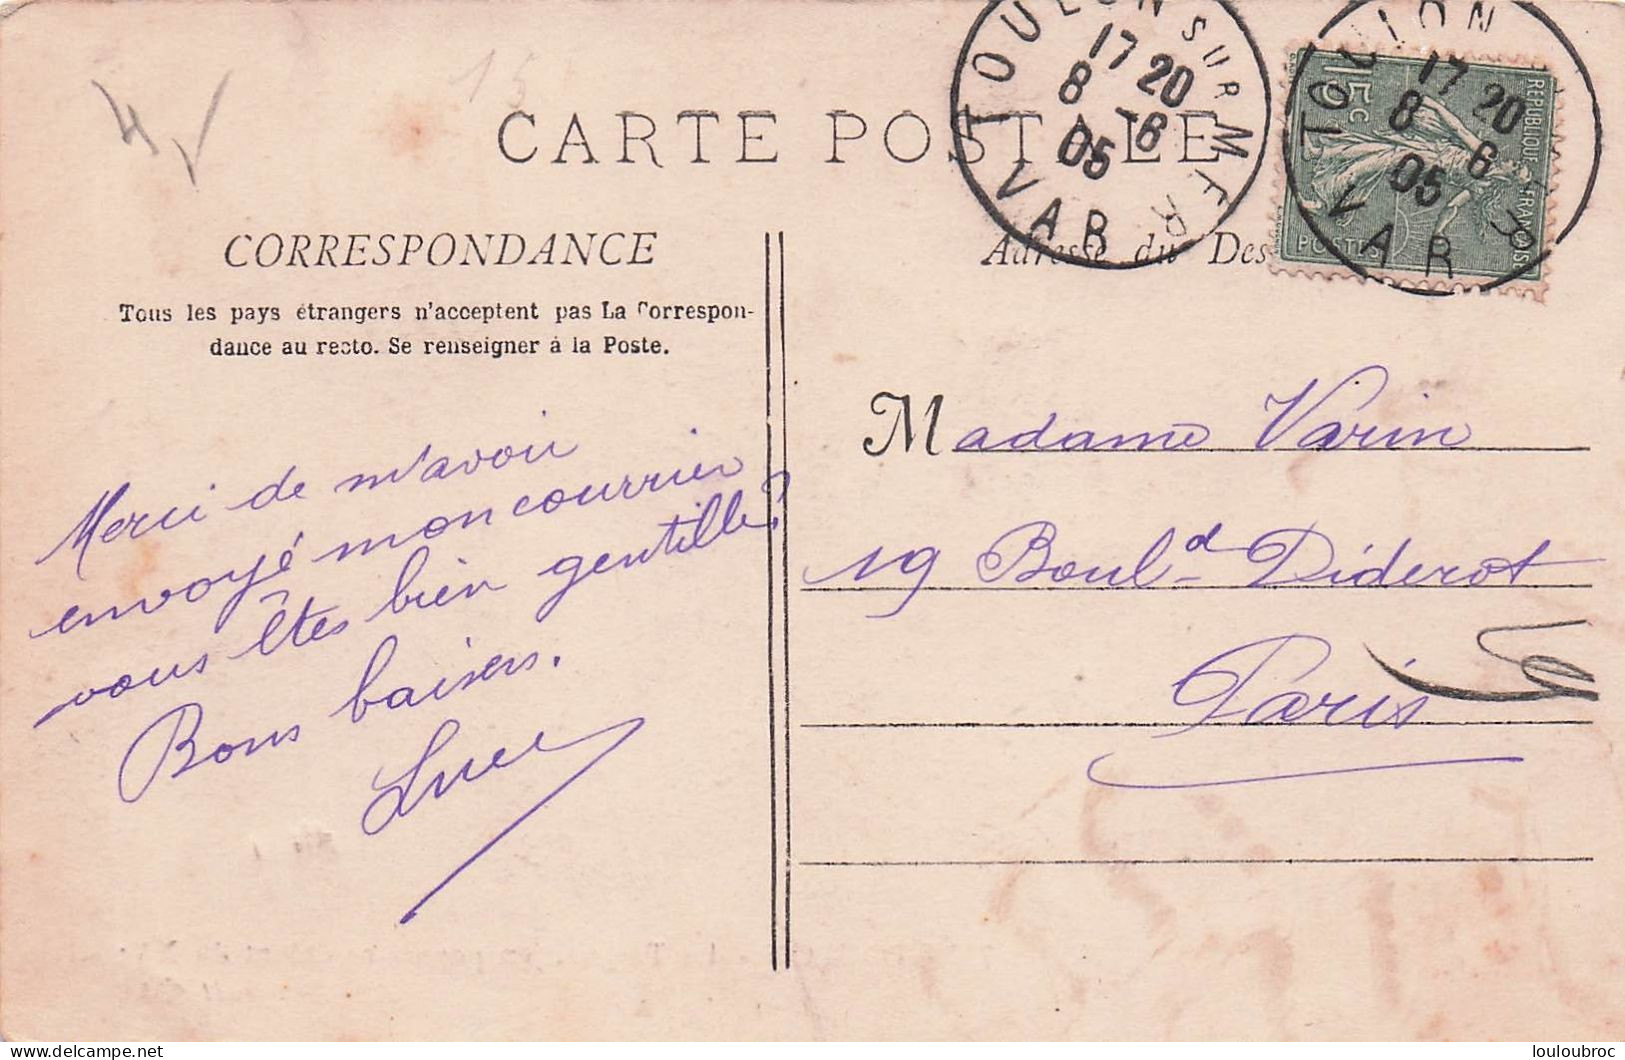 4 V
15
CARTE POSTALE
TOULON SUR MER
17 20
8 -6
05
VAR
TOULON
17 20
8 6
05
VAR
15c
REPUBLIQUE FRANCAISE
POSTES
CORRESPONDANCE
Tous les pays étrangers n'acceptent pas La Correspon-
dance au recto. Se renseigner à la Poste.
Adresse du Des
Merci de m'avoir
envoyé mon courrier
vous êtes bien gentille!
Bons baisers.
Luce
Madame Varin
19 Boul.d Diderot
Paris
delcampe.net
louloubroc